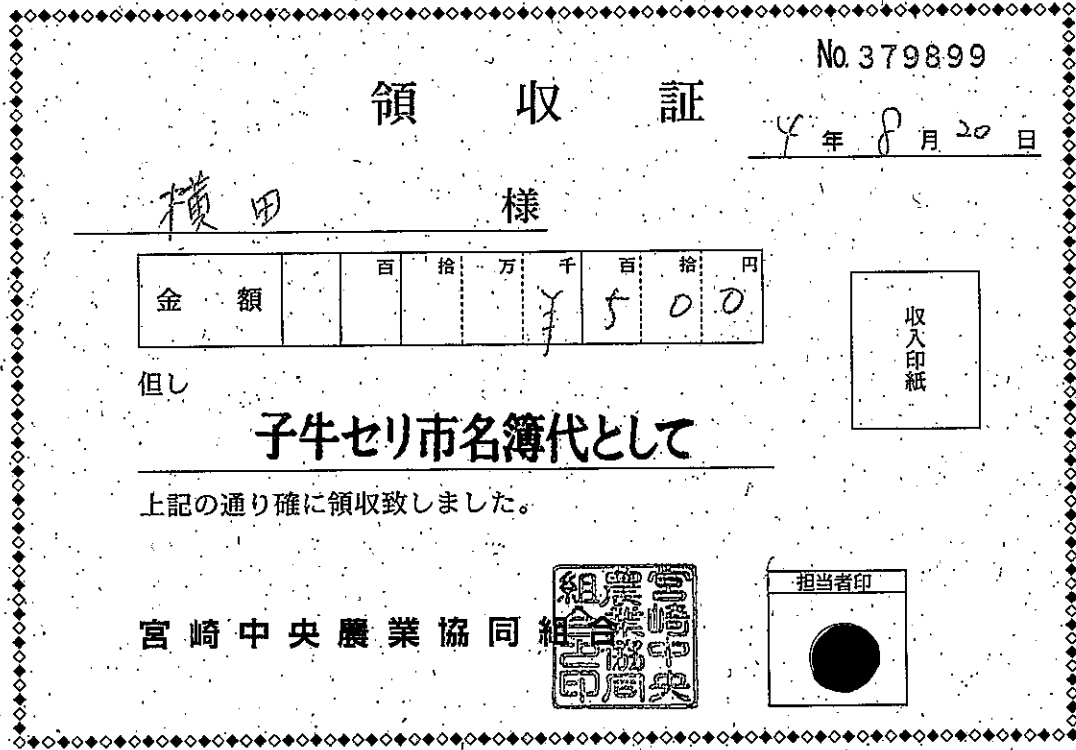 No.379899
領収証
4年8月20日
横田 様
金額 百 拾 万 千 百 拾 円
¥500
収入印紙
但し
子牛セリ市名簿代として
上記の通り確に領収致しました。
宮崎中央農業協同組合
宮崎中央
農業協同
組合之印
担当者印